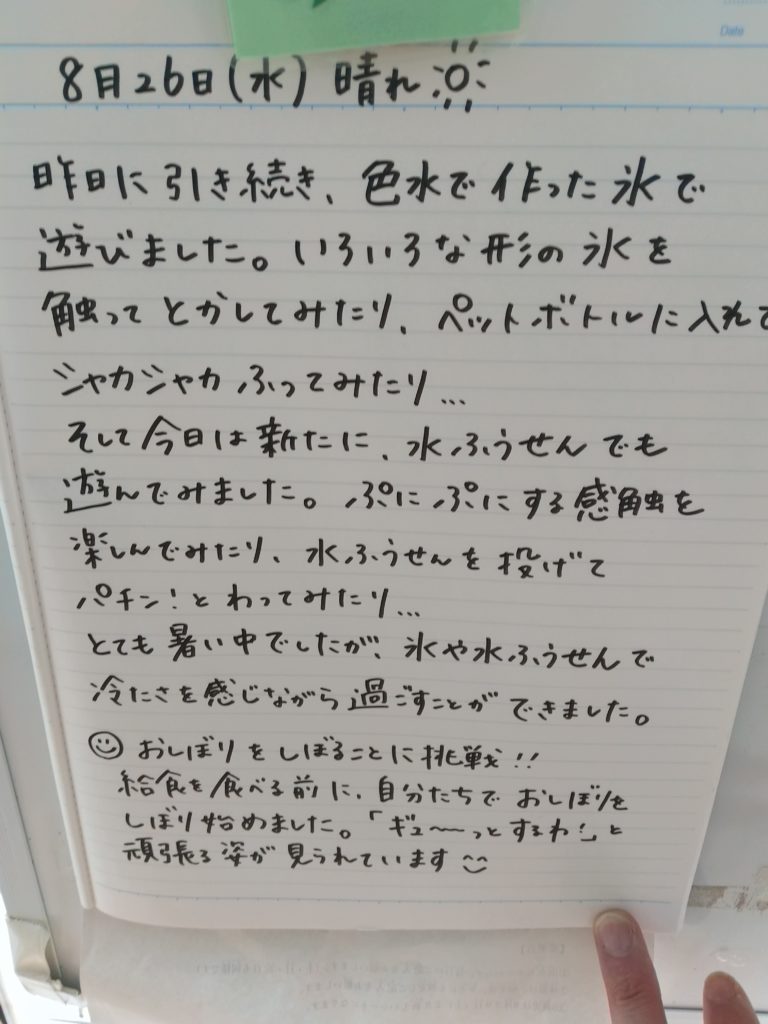 Date
8月26日(水) 晴れ
昨日に引き続き、色水で作った氷で
遊びました。いろいろな形の氷を
触ってとかしてみたり、ペットボトルに入れて
シャカシャカふってみたり…
そして今日は新たに、水ふうせんでも
遊んでみました。ぷにぷにする感触を
楽しんでみたり、水ふうせんを投げて
パチン!とわってみたり…
とても暑い中でしたが、氷や水ふうせんで
冷たさを感じながら過ごすことができました。
おしぼりをしぼることに挑戦!!
給食を食べる前に、自分たちでおしぼりを
しぼり始めました。「ギュ〜〜っとするわ!」と
頑張る姿が見られています